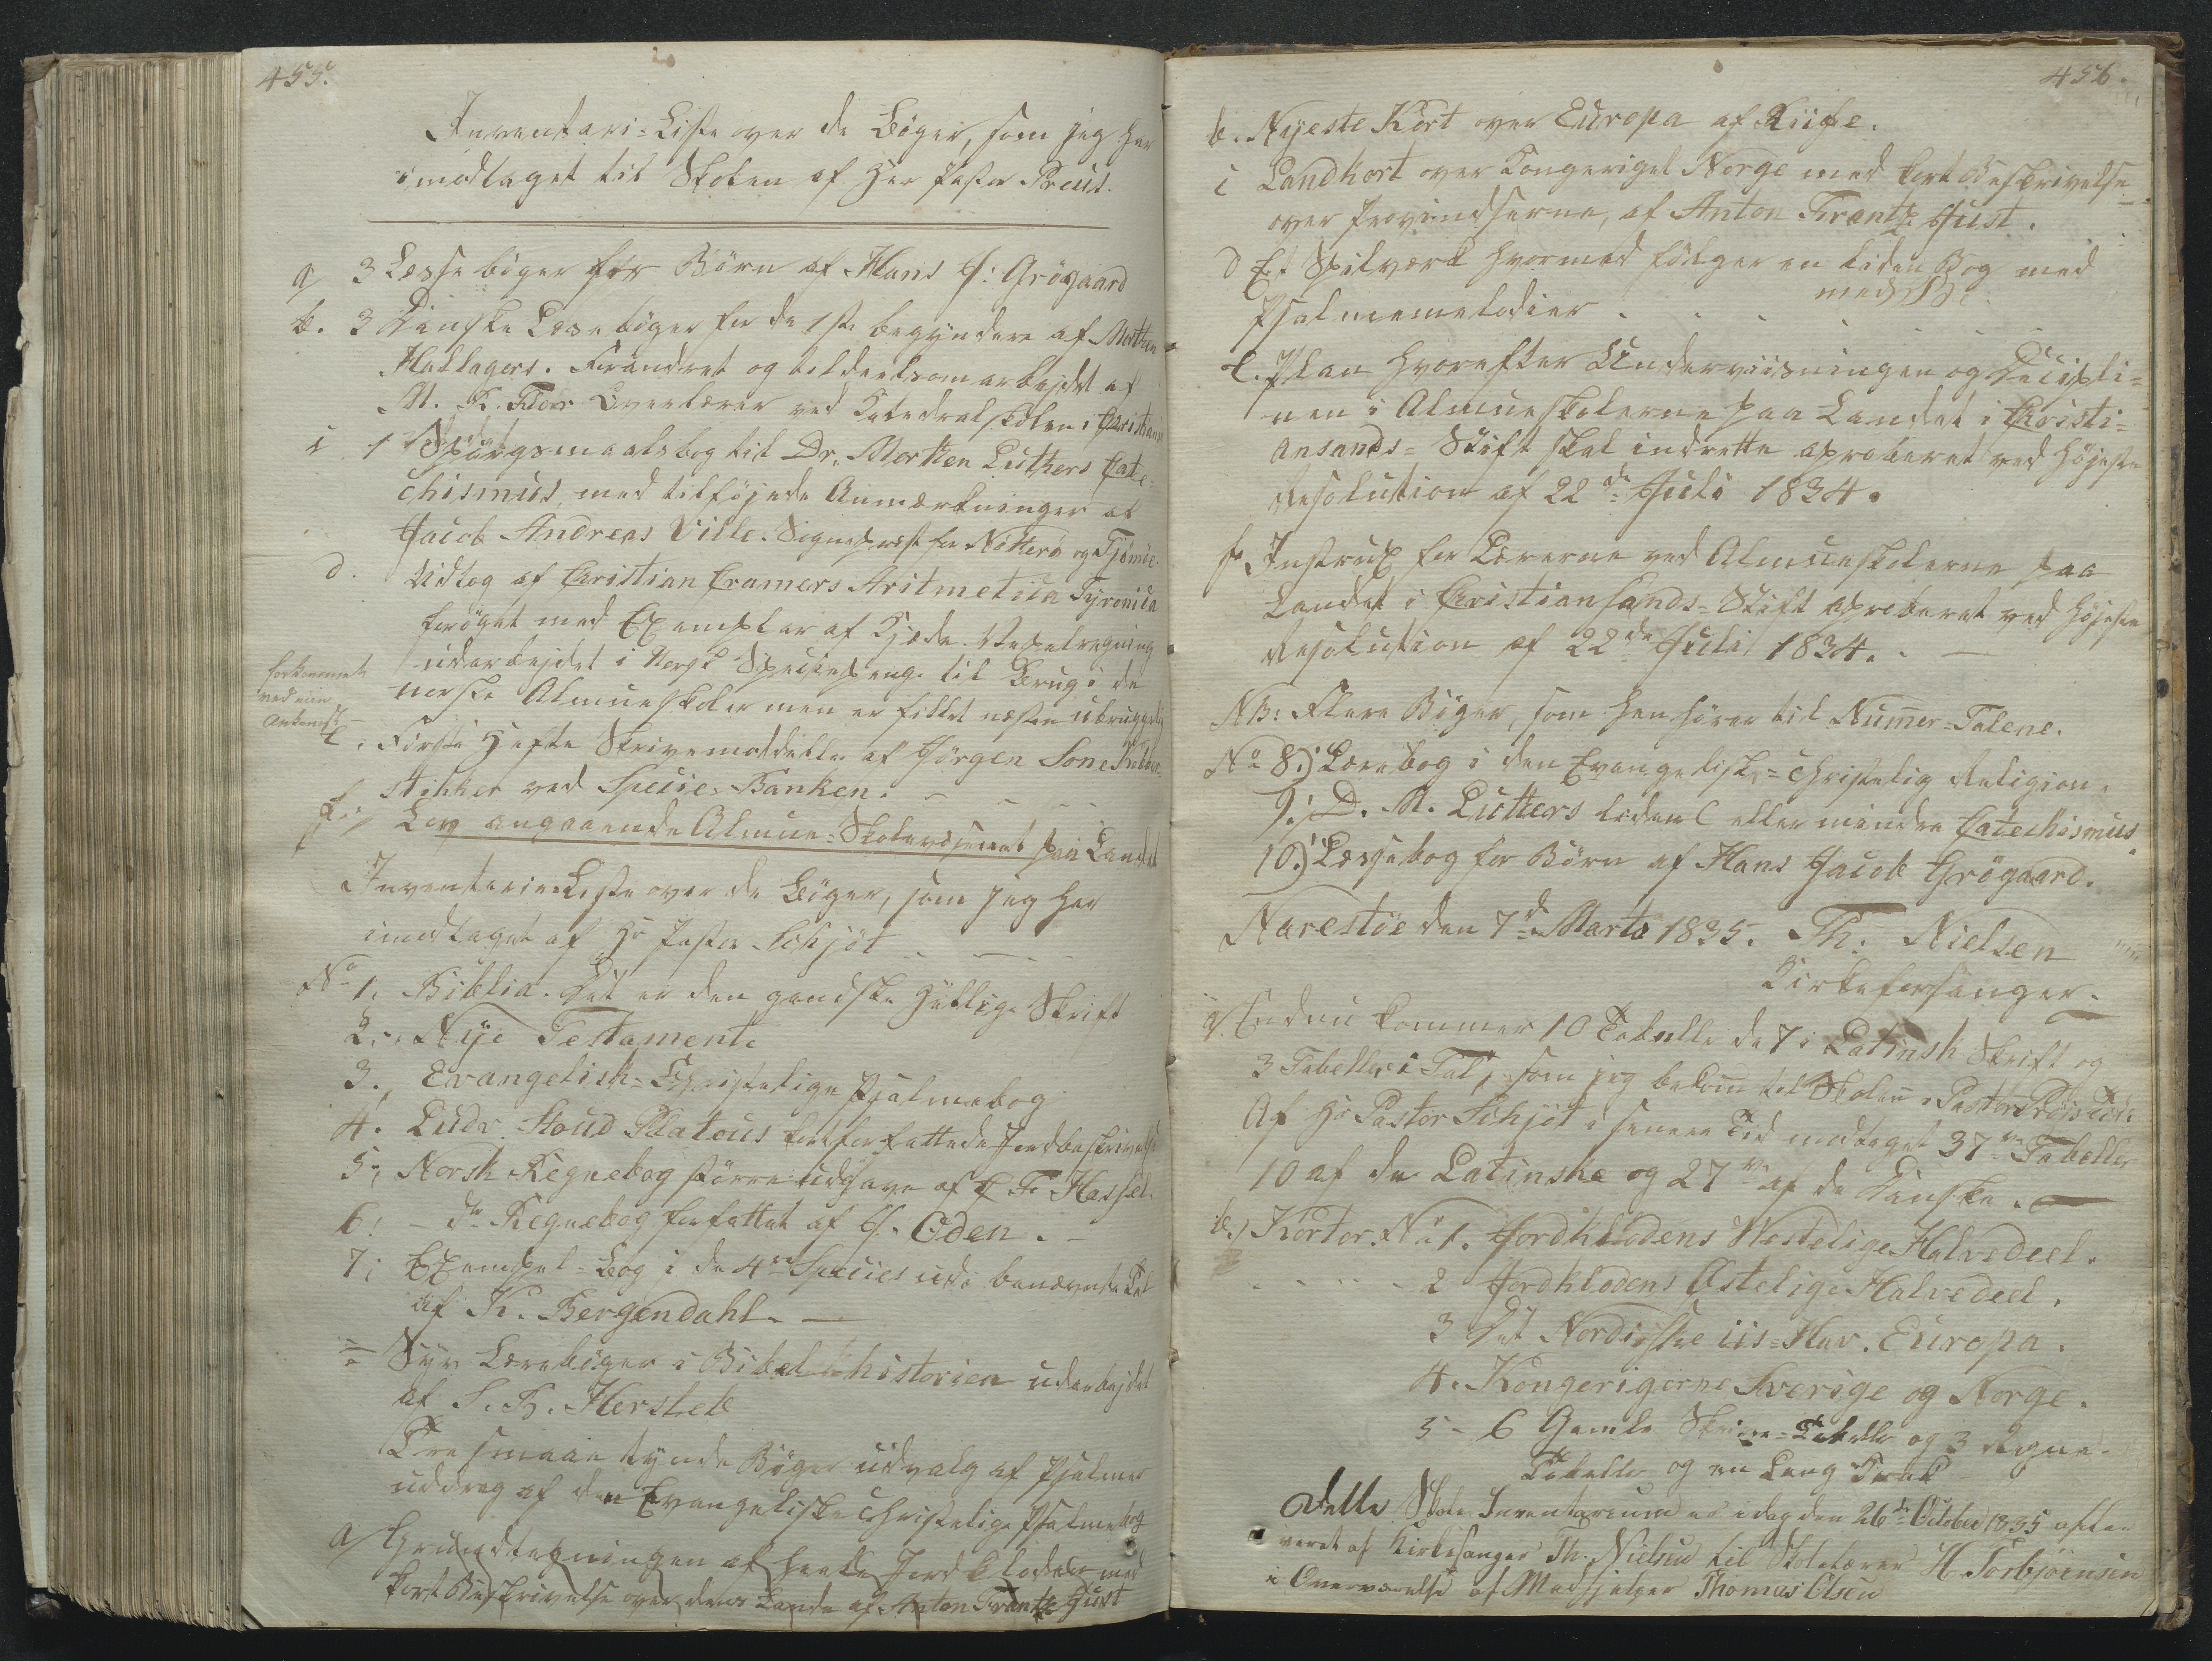 455.
Inventarie-Liste over de Bøger, som jeg har
imodtaget til Skolen af Her Pastor Preus.
a 3 Læsse bøger før Börn af Hans J: Grögaard
b. 3 Danske Læsebøger for de 1ste begyndere af Morthen
Hallagers. Forandret og tildeels omarbejdet af
M. R. Flor Overlærer ved Katedralskolen i Christians
c 1 Spörgsmaalsbog til Dr. Morthen Luthers Cate-
chismus, med tilføjede Anmærkninger af
Jacob Andreas Wille. Sogneprest for Nötterö og Tjömöe
d. Udtog af Christian Cramers Aritmetica Tyronica
forøget med Exemplar af Kjæde-Regelregning
udarbejdet i Norsk Speciepenge til Brug i de
norske Almueskoler men er slidt næsten ubrugelig
forkommet
ved min
Ankomst
e. Første Hefte Skrivemoddeller af Jörgen Sone Kobber-
stikker ved Specie-Banken.
f. Lov angaaende Almue-Skolevæsenet paa Landet
Inventarie-Liste over de Bøger, som jeg har
imodtaget af Hr Pastor Schjöt
No 1. Biblia. Det er den gandske Hellige Skrift
2. Nÿe Testamente
3. Evangelisk-Christelige Psalmebog
4. Ludv. Stoud Platous kortforfattede Jordbeskrivelse
5. Norsk Regnebog större udgave af C. F. Hassel.
6. - do Regnebog forfattet af G. Oden.
7. Exempel-Bog i de 4re Species udi benævnte Tal
af K. Bergendahl.
Syv Lærebøger i Bibelhistorien udarbejdet
af S. B. Hersleb
Tre smaae tynde Bøger udvalg af Psalmer
uddrag af den Evangeliske Christelige Psalmebog
a/ Grundtegningen af heele Jord Kloden med
kort Beskrivelse over dens Lande af Anton Frantz Just
456.
b. Nyeste Kört over Europa af
c Landkort over Kongeriget Norge med kort Beskrivelse
over Provindserne, af Anton Frantz Just.
d Et Spilværk hvormed følger en liden Bog med
Psalmemelodier
e. Plan hvorefter Underviisningen og Decipli-
nen i Almueskolerne paa Landet i Christi-
ansands-Stift skal indrette aproberet ved højeste
Resolution af 22de Juli 1834.
f. Instrux for Lærerne ved Almueskolerne paa
Landet i Christiansands-Stift aproberet ved højeste
Resolution af 22de Juli 1834.
NB: Flere Bøger, som henhører til Numer-Talene.
No 8.) Lærebog i den Evangelisk-christelig Religion.
9. D. M. Luthers liden eller mindre Catechismus.
10.) Læssebog for Börn af Hans Jacob Grögaard.
Narestöe den 7d Marts 1835. Th: Nielsen
Kirkeforsanger.
a/ Endnu kommer 10 Tabeller de 7 i Latinsk Skrift og
3 Tabeller i Tal, som jeg bekom til Skolen Pastor Preus Tid
Af Hr Pastor Schjöt i senere Tid modtaget 37ve Tabeller
10 af de Latinske og 27ve af de Danske.
b.) Kórter. No 1. Jordklodens Westelige Halvedeel.
2 Jordklodens Østelige Halvedeel.
3 Det Nordiske iis-Hav. Europa.
4. Kongerigerne Sverige og Norge.
5 - 6 Gamle Skrive-Tabeller og 3 Regne-
Tabeller og en Lang Bænk
Dette Skole Inventarium er idag den 26de October 1835 afle-
veret af Kirkesanger Th. Nielsen til Skolelærer H Torbjörnsen
i Overværelse af Medhjelper Thomas Olsen